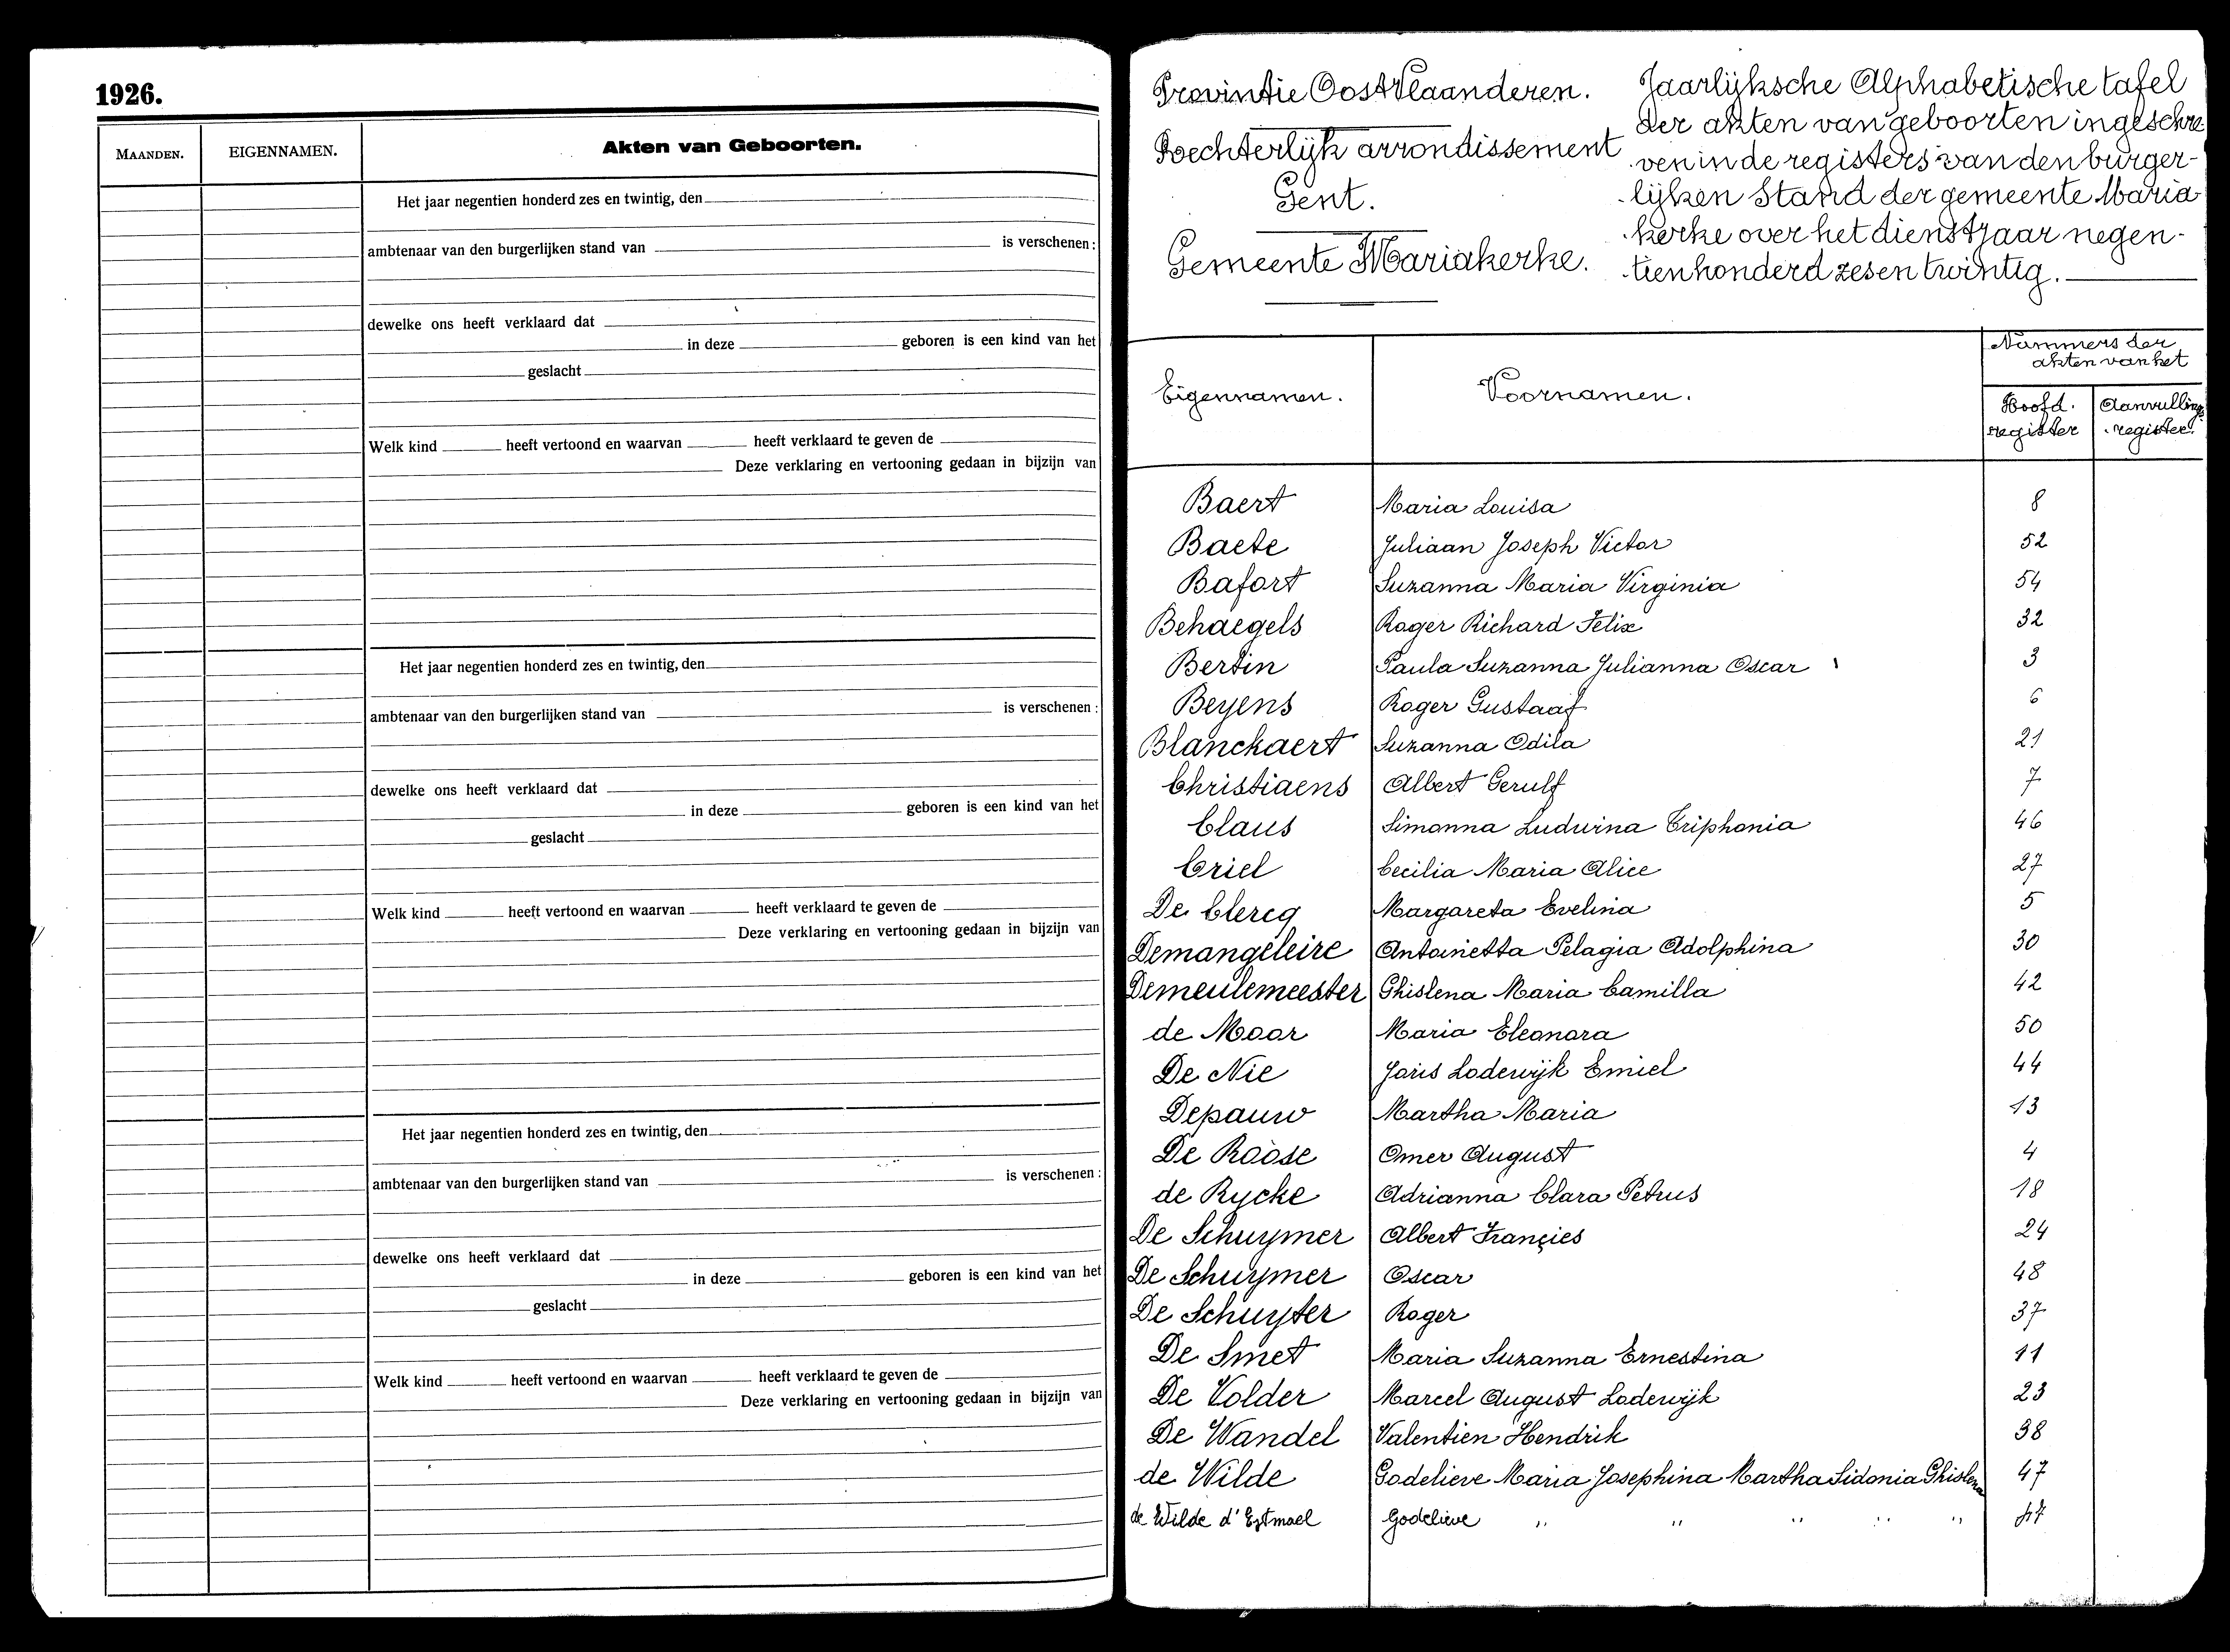 1926.
MAANDEN.
EIGENNAMEN.
Akten van Geboorten.
Het jaar negentien honderd zes en twintig, den
ambtenaar van den burgerlijken stand van is verschenen:
dewelke ons heeft verklaard dat
in deze geboren is een kind van het
geslacht
Welk kind heeft vertoond en waarvan heeft verklaard te geven de
Deze verklaring en vertooning gedaan in bijzijn van
Het jaar negentien honderd zes en twintig, den
ambtenaar van den burgerlijken stand van is verschenen:
dewelke ons heeft verklaard dat
in deze geboren is een kind van het
geslacht
Welk kind heeft vertoond en waarvan heeft verklaard te geven de
Deze verklaring en vertooning gedaan in bijzijn van
Het jaar negentien honderd zes en twintig, den
ambtenaar van den burgerlijken stand van is verschenen:
dewelke ons heeft verklaard dat
in deze geboren is een kind van het
geslacht
Welk kind heeft vertoond en waarvan heeft verklaard te geven de
Deze verklaring en vertooning gedaan in bijzijn van
Provintie Oost Vlaanderen.
Rechterlijk arrondissement
Gent.
Gemeente Mariakerke.
Jaarlijksche Alphabetische tafel
der akten van geboorten ingeschre-
ven in de registers van den burger-
lijken Stand der gemeente Maria-
kerke over het dienstjaar negen-
tienhonderd zes en twintig.
Eigennamen.
Voornamen.
Nummers der
akten van het
Hoofd-
register
Aanvullings
register.
Baert Maria Louisa 8
Baete Juliaan Joseph Victor 52
Bafort Suzanna Maria Virginia 54
Behaegels Roger Richard Felix 32
Bertin Paula Suzanna Julianna Oscar 3
Beyens Roger Gustaaf 6
Blanckaert Suzanna Odila 21
Christiaens Albert Gerulf 7
Claus Simonna Ludwina Triphonia 46
Criel Cecilia Maria Alice 27
De Clercq Margareta Evelina 5
Demangeleire Antoinetta Pelagia Adolphina 30
Demeulemeester Ghislena Maria Camilla 42
de Moor Maria Eleonora 50
De Nie Joris Lodewijk Emiel 44
Depauw Martha Maria 13
De Roose Omer August 4
de Rycke Adrianna Clara Petrus 18
De Schuymer Albert Françies 24
De Schuymer Oscar 48
De Schuyter Roger 37
De Smet Maria Suzanna Ernestina 11
De Volder Marcel August Lodewijk 23
De Wandel Valentien Hendrik 38
de Wilde Godelieve Maria Josephina Martha Sidonia Ghislena 47
de Wilde d'Estmael Godelieve " " " " " 47